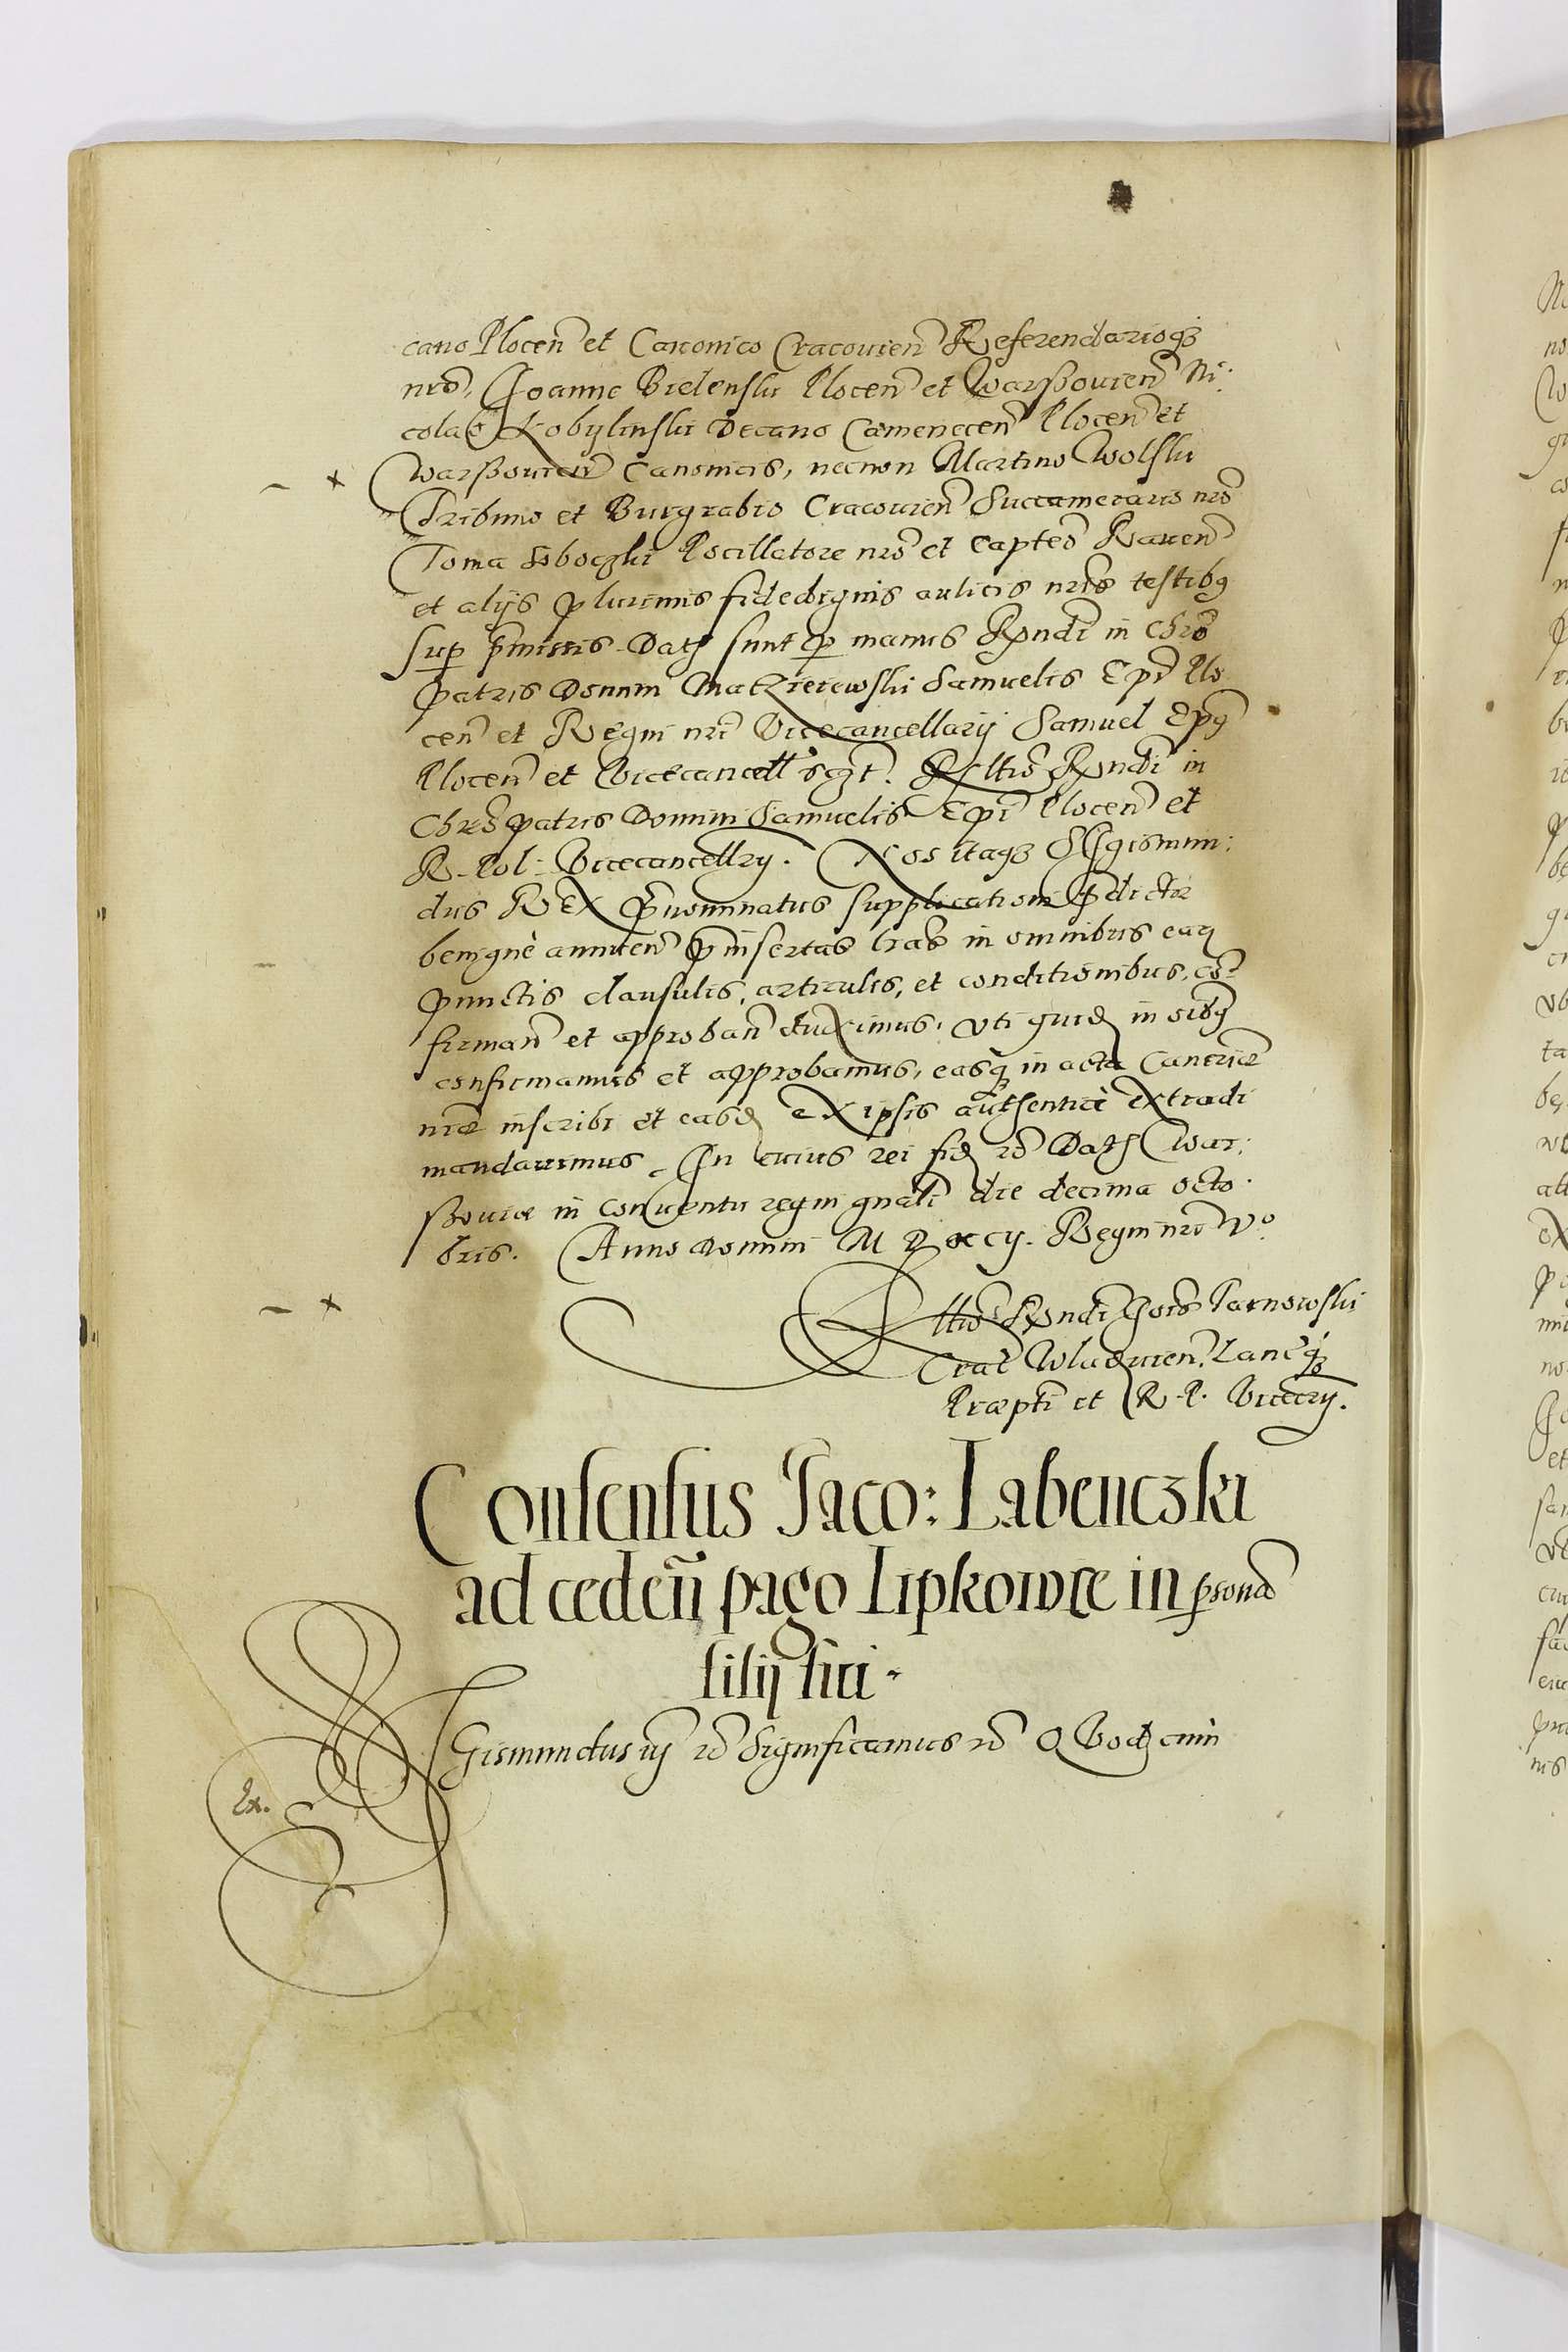 cano Plocen̄ et Canonico Cracouien̄ Referendarioq3
nrō, Joanne Bielenski Plocen̄ et Warßouien̄ Ni:
colaō Kobylinski Decano Camenecen̄ Plocen̄ et
Warßouien̄ Canonicis, necnon Martino Wolski
Tribuno et Burgrabio Cracouien̄ Succamerario nrō
Toma Poczillatore nrō et Capteō Rauen̄
et alijs plurimis fidedignis aulicis nrīs testibꝯ
sup p̄missis. Datꝭ sunt ꝑ manus Rx̄ndi in Chrō
patris Domini Matziieiowski Samuelis Epī Plo
cen̄ et Regni nrī Vicecancellarij Samuel Epꝯ
Plocen̄ et Vicecancell sszt. Rlltio Rx̄ndi in
Chrō patris Domini Samuelis Epī Plocen̄ et
R. Pol: Vicecancellrij. Nos itaq3 SIgismun:
dus REX p̄nominatus supplicationi p̄dictæ
benignè annuen̄ p̄insertas lr̄as in omnibus earꝝ
punctis clausulis, articulis, et conditionibus, cō:
firman̄ et approban̄ duximus. vti quidē in oībꝯ
confirmamus et approbamus, easq3 in acta Canc̄riæ
nr̄æ inscribi et easdē ex ipsis authenticè extradi
mandauimus. In cuius rei fidē rō Datꝭ War:
ßouiæ in Conuentu regni gnāli die decima octo:
bris. Anno Domini M D XCIJ. Regni nrī Vº
Rlltio Rx̄ndi Joīs Tarnowski
Crac̄ Wladiuien̄, Lanc̄q3
Præpti et R. P. Vicecrij.
Consensus Jaco: Labenczki
ad ceden̄ pago Lipkowice in ꝑsonā
filij sui.
SIGismundus iijꝯ rō Significamus rō Quod cum
Ex.